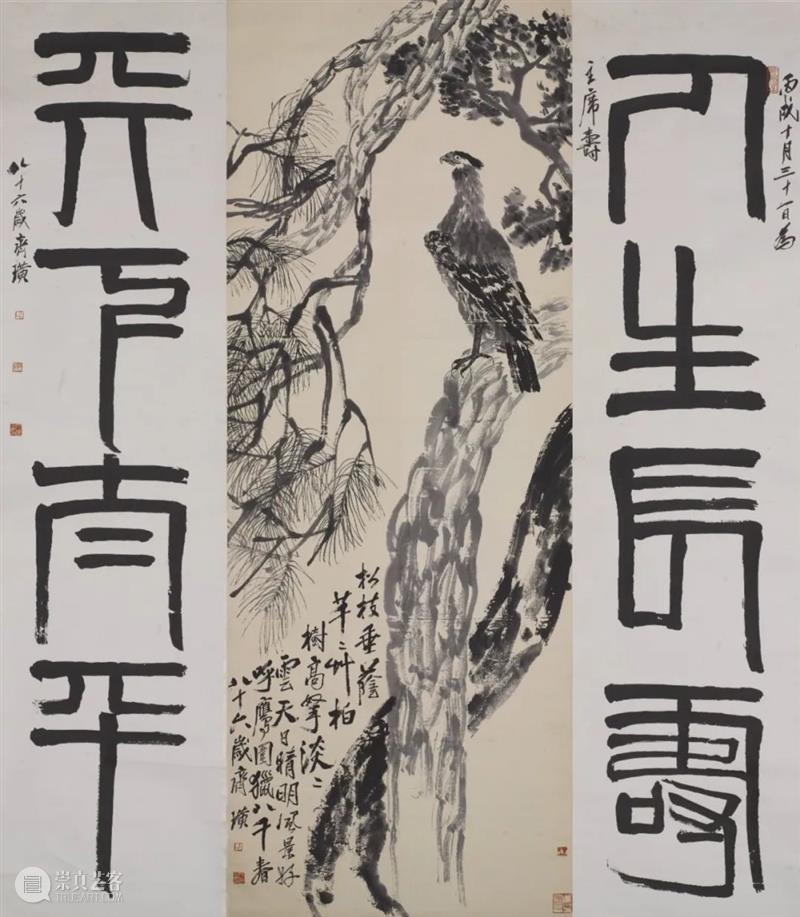 丙戌十月三十一日為
人生長壽
主席壽
松枝垂蔭
芊〻艸柏
樹高擎淡〻
雲天日晴明風景好
呼鷹圍獵八千春
八十六歲齊璜
天下太平
八十六歲齊璜
崇真艺客
TRUEART.COM